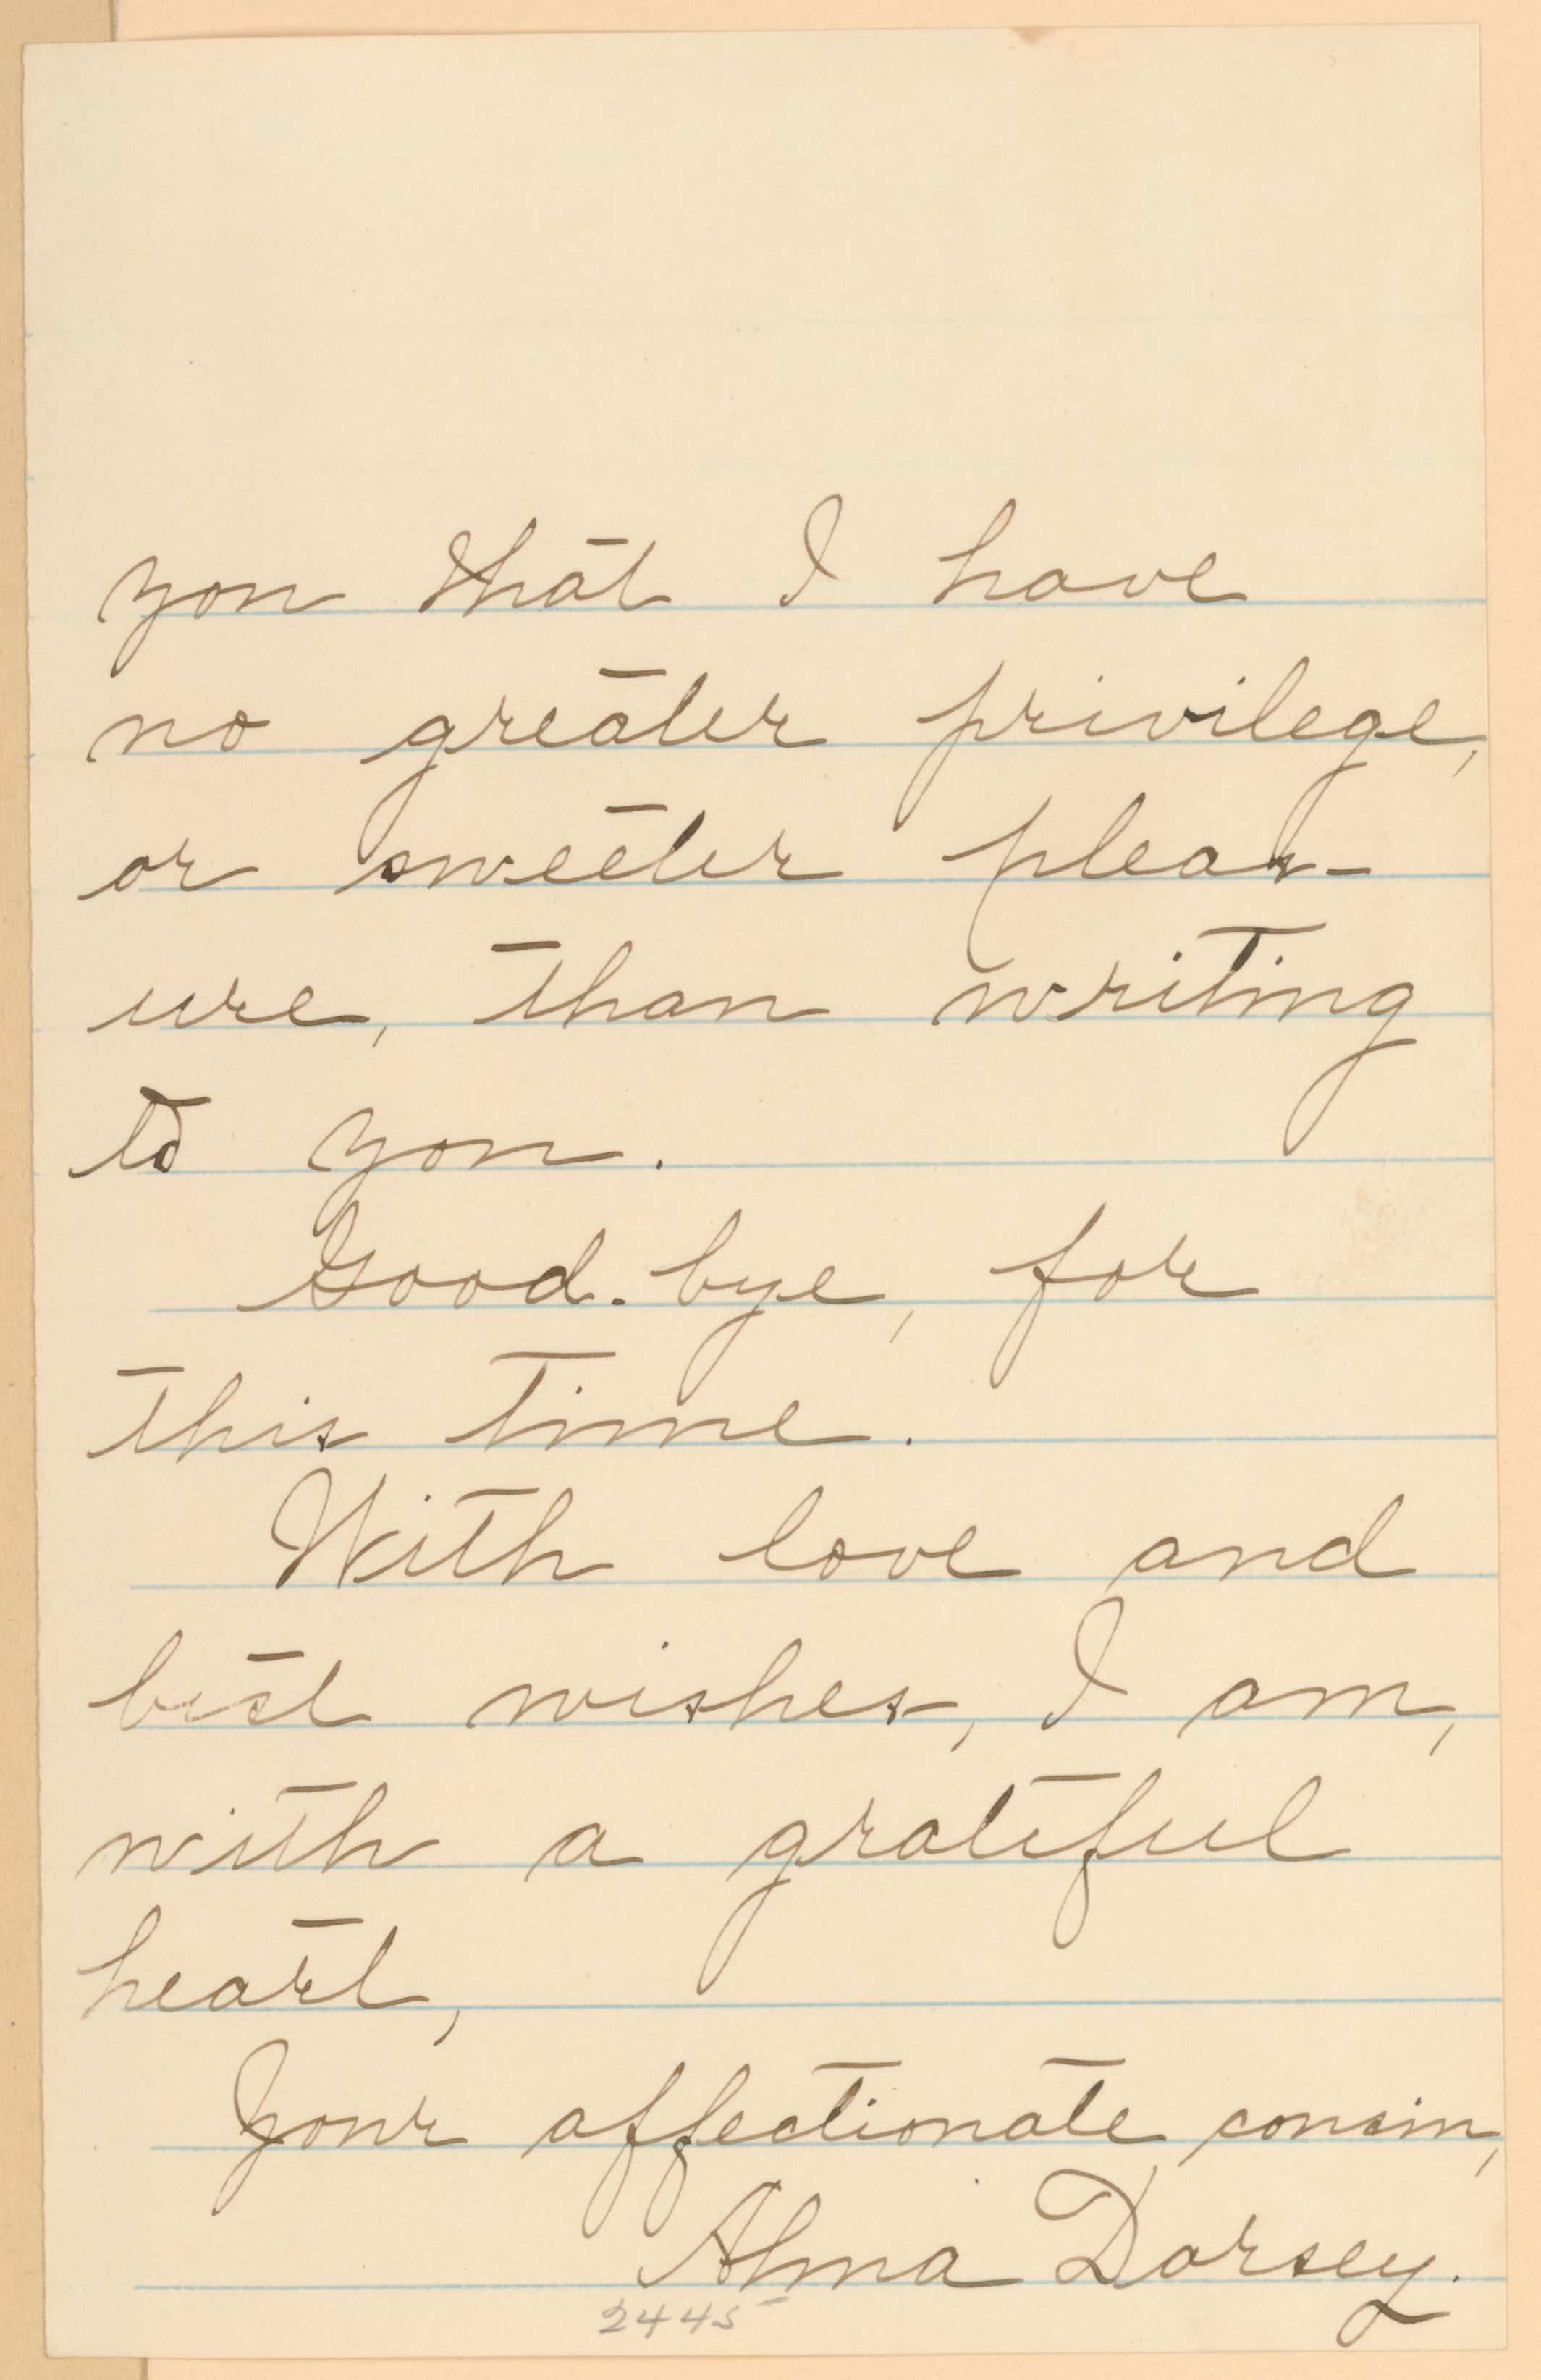 you that I have
no greater privilege,
or sweeter pleas-
ure, than writing
to you.
Good-bye, for
this time.
With love and
best wishes, I am,
with a grateful
heart,
Your affectionate cousin,
Alma Dorsey.
2445